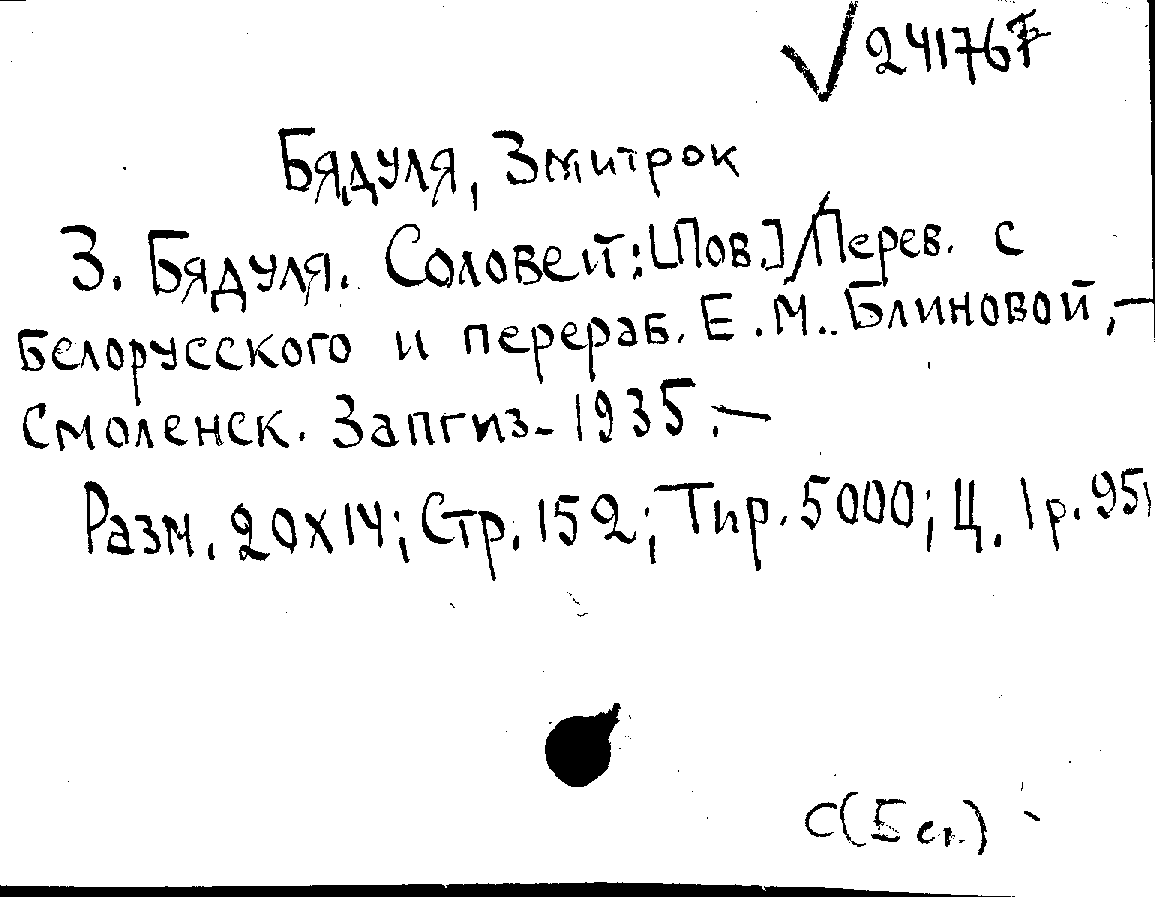 √241767
Бядуля, Змитрок
З. Бядуля. Соловей: [Пов.] / Перев. с
белорусского и перераб. Е. М. Блиновой, —
Смоленск. Запгиз - 1935. —
Разм. 20х14; Стр. 152; Тир. 5000; Ц. 1р. 95